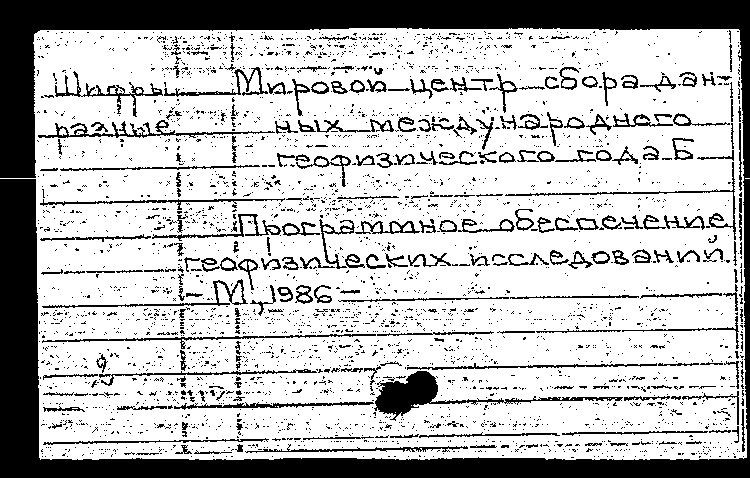 Шифры Мировой центр сбора дан-
разные ных международного
геофизического года Б
Программное обеспечение
геофизических исследований.
- М., 1986 -